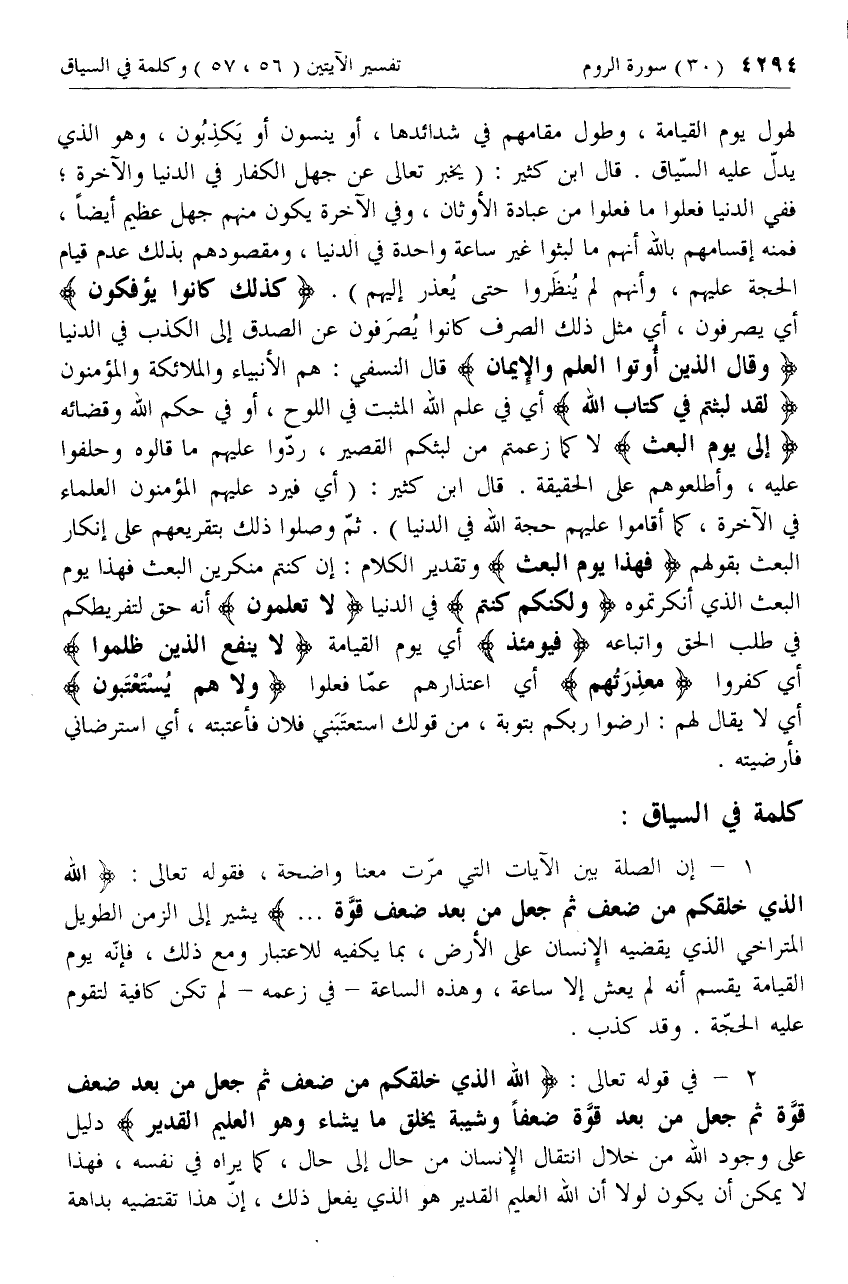 ٤٢٩٤ (٣٠) سورة الروم تفسير الآيتين (٥٦ ، ٥٧) وكلمة في السياق
لهول يوم القيامة ، وطول مقامهم في شدائدها ، أو ينسون أو يَكذِبُون ، وهو الذي
يدلّ عليه السّياق . قال ابن كثير : ( يخبر تعالى عن جهل الكفار في الدنيا والآخرة ؛
ففي الدنيا فعلوا ما فعلوا من عبادة الأوثان ، وفي الآخرة يكون منهم جهل عظيم أيضاً ،
فمنه إقسامهم بالله أنهم ما لبثوا غير ساعة واحدة في الدنيا ، ومقصودهم بذلك عدم قيام
الحجة عليهم ، وأنهم لم يُنظَروا حتى يُعذر إليهم ) . ﴿ كذلك كانوا يؤفكون ﴾
أي يصرفون ، أي مثل ذلك الصرف كانوا يُصرَفون عن الصدق إلى الكذب في الدنيا
﴿ وقال الذين أُوتوا العلم والإيمان ﴾ قال النسفي : هم الأنبياء والملائكة والمؤمنون
﴿ لقد لبثتم في كتاب الله ﴾ أي في علم الله المثبت في اللوح ، أو في حكم الله وقضائه
﴿ إلى يوم البعث ﴾ لا كما زعمتم من لبثكم القصير ، ردّوا عليهم ما قالوه وحلفوا
عليه ، وأطلعوهم على الحقيقة . قال ابن كثير : ( أي فيرد عليهم المؤمنون العلماء
في الآخرة ، كما أقاموا عليهم حجة الله في الدنيا ) . ثمّ وصلوا ذلك بتقريعهم على إنكار
البعث بقولهم ﴿ فهذا يوم البعث ﴾ وتقدير الكلام : إن كنتم منكرين البعث فهذا يوم
البعث الذي أنكرتموه ﴿ ولكنكم كنتم ﴾ في الدنيا ﴿ لا تعلمون ﴾ أنه حق لتفريطكم
في طلب الحق واتباعه ﴿ فيومئذ ﴾ أي يوم القيامة ﴿ لا ينفع الذين ظلموا ﴾
أي كفروا ﴿ معذِرَتُهم ﴾ أي اعتذارهم عمّا فعلوا ﴿ ولا هم يُسْتَعْتَبون ﴾
أي لا يقال لهم : ارضوا ربكم بتوبة ، من قولك استعتَبَني فلان فأعتبته ، أي استرضاني
فأرضيته .
كلمة في السياق :
١ – إن الصلة بين الآيات التي مرّت معنا واضحة ، فقوله تعالى : ﴿ الله
الذي خلقكم من ضعف ثم جعل من بعد ضعف قوَّة ... ﴾ يشير إلى الزمن الطويل
المتراخي الذي يقضيه الإنسان على الأرض ، بما يكفيه للاعتبار ومع ذلك ، فإنّه يوم
القيامة يقسم أنه لم يعش إلا ساعة ، وهذه الساعة – في زعمه – لم تكن كافية لتقوم
عليه الحجّة . وقد كذب .
٢ – في قوله تعالى : ﴿ الله الذي خلقكم من ضعف ثم جعل من بعد ضعف
قوَّة ثم جعل من بعد قوَّة ضعفاً وشيبة يخلق ما يشاء وهو العليم القدير ﴾ دليل
على وجود الله من خلال انتقال الإنسان من حال إلى حال ، كما يراه في نفسه ، فهذا
لا يمكن أن يكون لولا أن الله العليم القدير هو الذي يفعل ذلك ، إنّ هذا تقتضيه بداهة